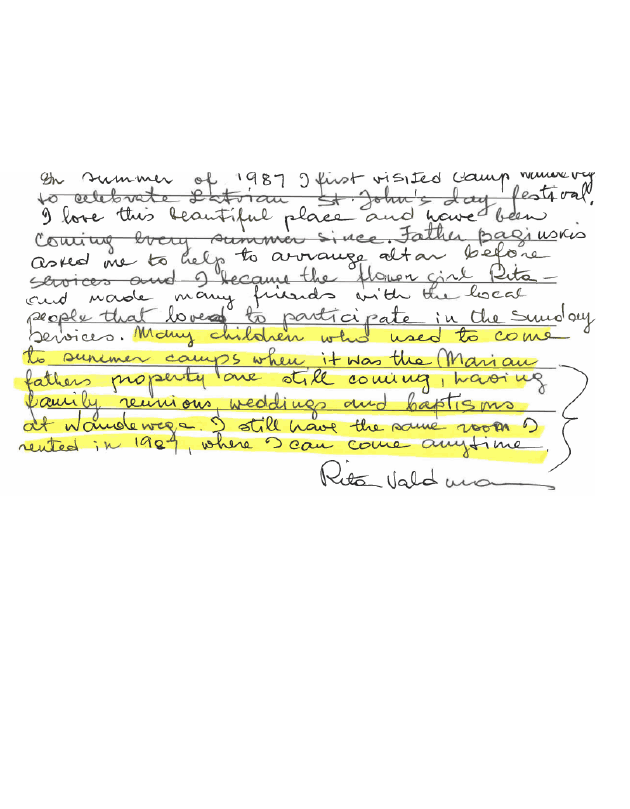 In summer of 1987 I first visited Camp
to celebrate Latvian St. John's day festival.
I love this beautiful place and have been
coming every summer since. Father Baginskis
asked me to help to arrange altar before
services and I became the flower girl Rita -
and made many friends with the local
people that loved to participate in the Sunday
Services. Many children who used to come
to summer camps when it was the Marian
fathers property are still coming, having
family reunions, weddings and baptisms
at Wandawega. I still have the same room I
rented in 1987, where I can come anytime.
Rita Valdman